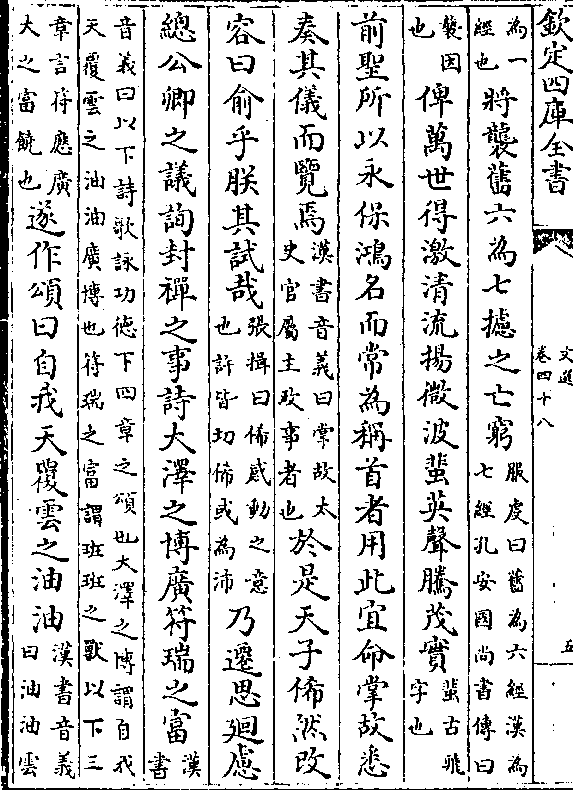 欽定四庫全書 文選 卷四十八 五
為一經也將襲舊六為七攄之亡窮服虔曰舊為六經漢為七經孔安國尚書傳曰
襲因也俾萬世得激清流揚微波蜚英聲騰茂實蜚古飛字也
前聖所以永保鴻名而常為稱首者用此宜命掌故悉
奏其儀而覽焉漢書音義曰掌故太史官屬主故事者也於是天子俙然改
容曰俞乎朕其試哉張揖曰俙感動之意也許皆切俙或為沛乃遷思廻慮
總公卿之議詢封禪之事詩大澤之博廣符瑞之富漢書
音義曰以下詩歌詠功徳下四章之頌也大澤之博謂自我天覆雲之油油廣博也符瑞之富謂班班之獸以下三
章言符應廣大之富饒也遂作頌曰自我天覆雲之油油漢書音義曰油油雲